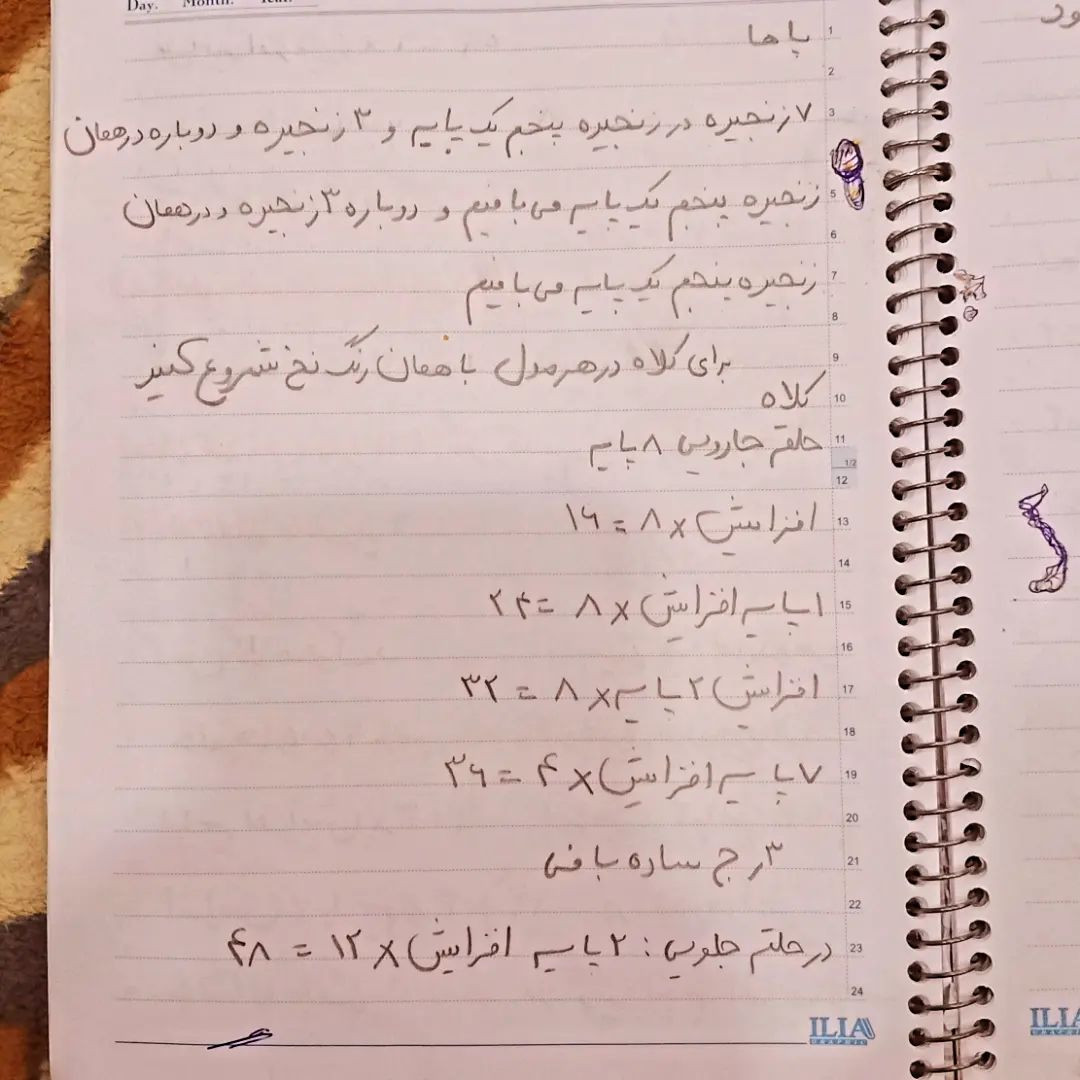 Day. Month. Year.
پاها
۷ زنجیره در زنجیره پنجم یک پایه و ۳ زنجیره و دوباره در همان
زنجیره پنجم یک پایه می بافیم و دوباره ۳ زنجیره و در همان
زنجیره پنجم یک پایه می بافیم
برای کلاه در هر مدل با همان رنگ نخ شروع کنید
کلاه
حلقه جادویی ۸ پایه
افزایش x ۸ = ۱۶
۱ پایه افزایش x ۸ = ۲۴
افزایش ۲ پایه x ۸ = ۳۲
۷ پایه افزایش x ۴ = ۳۶
۳ رج ساده بافی
در حلقه جلویی : ۲ پایه افزایش x ۱۲ = ۴۸
1
2
3
5
6
7
8
9
10
11
1/2
12
13
14
15
16
17
18
19
20
21
22
23
24
ILIA
GRAPHIC
ود
ILIA